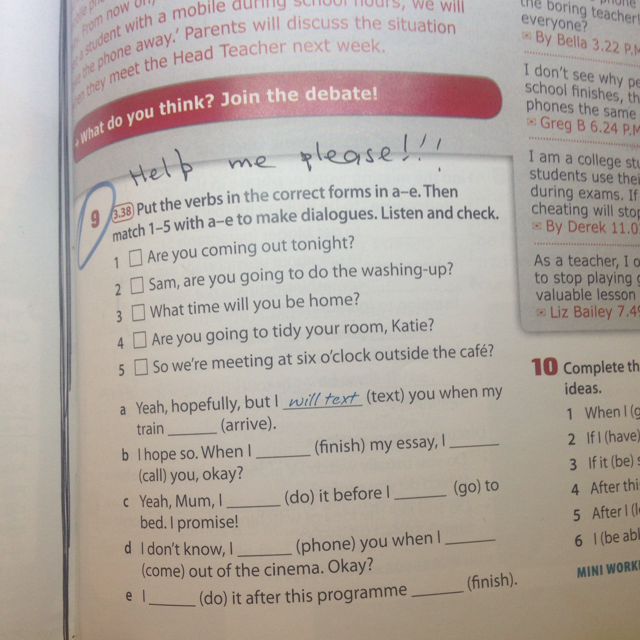 From now on,
a student with a mobile during school hours, we will
the phone away.' Parents will discuss the situation
they meet the Head Teacher next week.
What do you think? Join the debate!
Help me please!!!
9 3.38 Put the verbs in the correct forms in a–e. Then
match 1–5 with a–e to make dialogues. Listen and check.
1 Are you coming out tonight?
2 Sam, are you going to do the washing-up?
3 What time will you be home?
4 Are you going to tidy your room, Katie?
5 So we're meeting at six o'clock outside the café?
a Yeah, hopefully, but I will text (text) you when my
train ______ (arrive).
b I hope so. When I ______ (finish) my essay, I ______
(call) you, okay?
c Yeah, Mum, I ______ (do) it before I ______ (go) to
bed. I promise!
d I don't know, I ______ (phone) you when I ______
(come) out of the cinema. Okay?
e I ______ (do) it after this programme ______ (finish).
the boring teacher
everyone?
By Bella 3.22 P.M
I don't see why
school finishes,
phones the same
Greg B 6.24 P.M
I am a college
students use
during exams. If
cheating will stop
By Derek 11.0
As a teacher, I
to stop playing
valuable lesson
Liz Bailey 7.4
10 Complete
ideas.
1 When I
2 If I (have)
3 If it (be)
4 After
5 After I
6 I (be
MINI